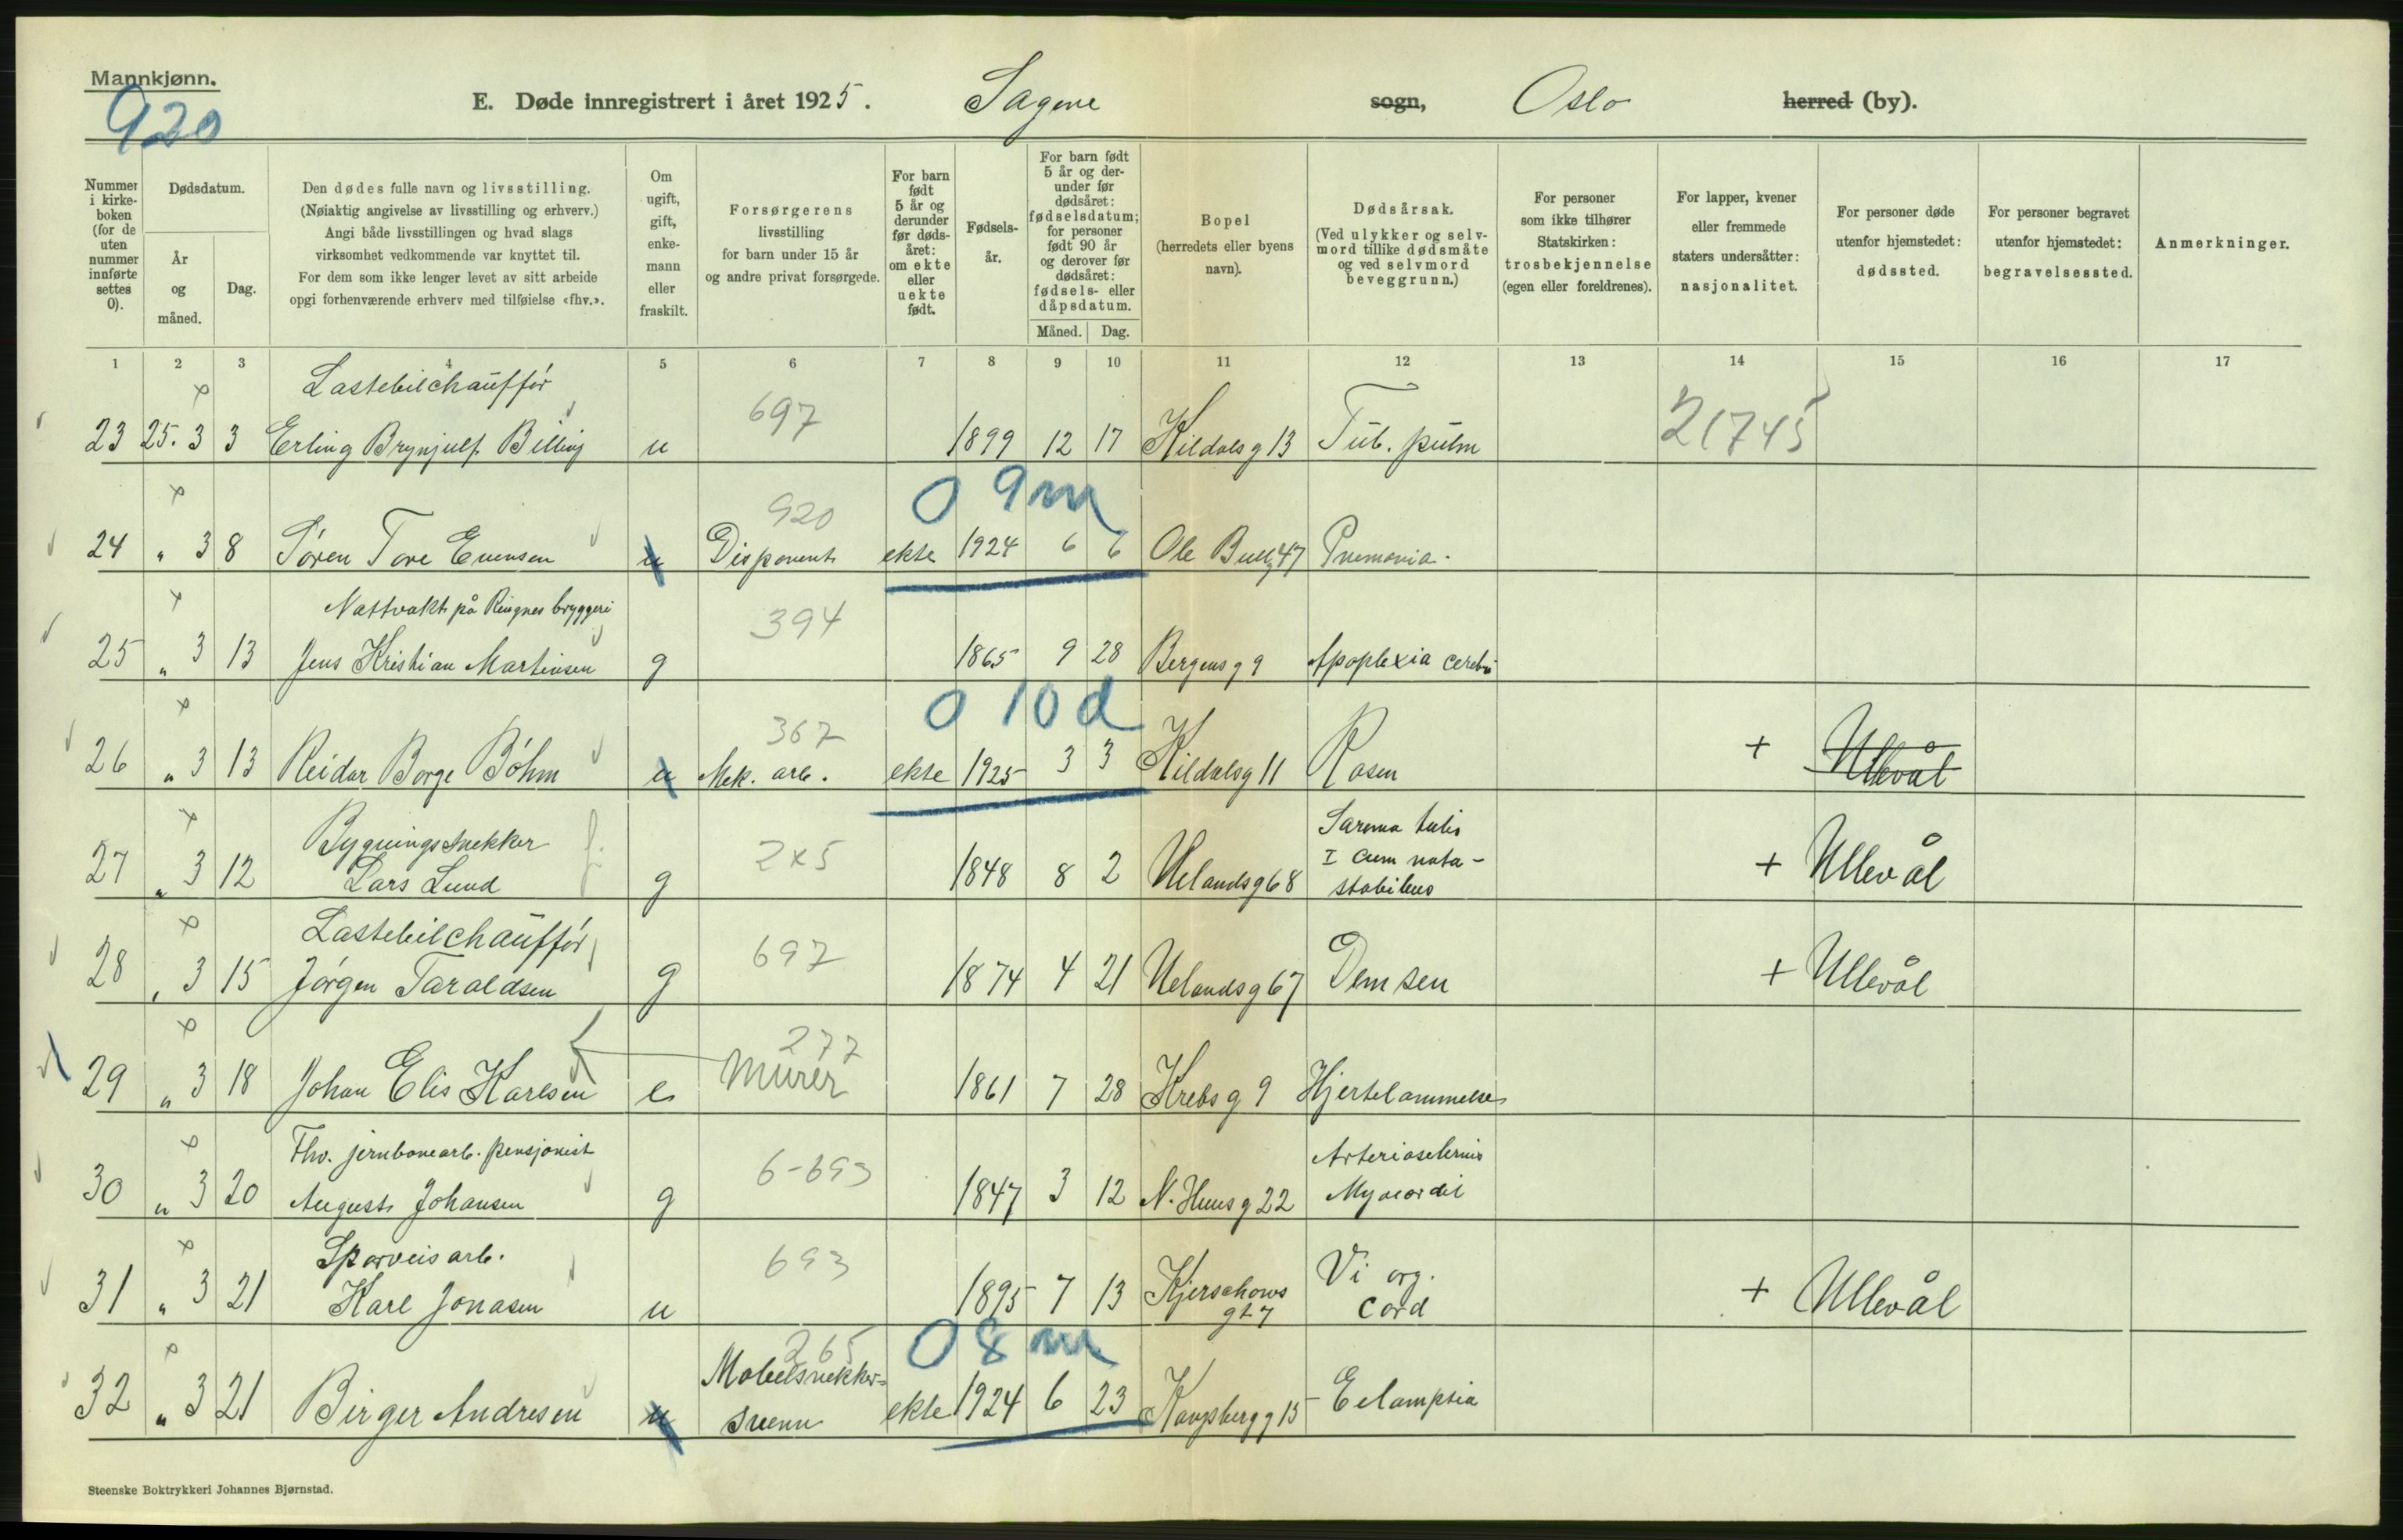 Mannkjønn.
920
E. Døde innregistrert i året 1925. Sagene sogn, Oslo herred (by).
Nummer i kirkeboken (for de uten nummer innførte settes 0).
Dødsdatum.
År og måned.
Dag.
Den dødes fulle navn og livsstilling.
(Nøiaktig angivelse av livsstilling og erhverv.)
Angi både livsstillingen og hvad slags
virksomhet vedkommende var knyttet til.
For dem som ikke lenger levet av sitt arbeide
opgi forhenværende erhverv med tilføielse «fhv.».
Om ugift, gift, enkemann eller fraskilt.
Forsørgerens livsstilling
for barn under 15 år
og andre privat forsørgede.
For barn født 5 år og derunder før dødsåret: om ekte eller uekte født.
Fødselsår.
For barn født 5 år og derunder før dødsåret: fødselsdatum; for personer født 90 år og derover før dødsåret: fødsels- eller dåpsdatum.
Måned. Dag.
Bopel
(herredets eller byens navn).
Dødsårsak.
(Ved ulykker og selvmord tillike dødsmåte og ved selvmord beveggrunn.)
For personer som ikke tilhører Statskirken: trosbekjennelse (egen eller foreldrenes).
For lapper, kvener eller fremmede staters undersåtter: nasjonalitet.
For personer døde utenfor hjemstedet: dødssted.
For personer begravet utenfor hjemstedet: begravelsessted.
Anmerkninger.
1 2 3 4 5 6 7 8 9 10 11 12 13 14 15 16 17
Lastebilchauffør
23 25. 3 3 Erling Brynjulf Billing u 697 1899 12 17 Kildalsg 13 Tub. pulm 21745
0 9m
920
24 " 3 8 Søren Tore Evensen u Disponent ekte 1924 6 6 Ole Bullg 47 Pnemonia.
Nattvakt på Ringnes bryggeri
25 " 3 13 Jens Kristian Martinsen g 394 1865 9 28 Bergensg 9 Apoplexia cerebri
0 10d
367
26 " 3 13 Reidar Borge Böhm u Mek. arb. ekte 1925 3 3 Kildalsg 11 Rosen + Ullevål
Bygningssnekker
27 " 3 12 Lars Lund g 2x5 1848 8 2 Uelandsg 68 I cum + Ullevål
Lastebilchauffør
28 " 3 15 Jörgen Taraldsen g 697 1874 4 21 Uelandsg 67 + Ullevål
277
29 " 3 18 Johan Elis Karlsen e Murer 1861 7 28 Krebsg 9 Hjertelammelse
Fhv. jernbanearb. pensjonist
30 " 3 20 August Johansen g 6-693 1847 3 12 N. Huusg 22 Arteriosclerosis
Myocardit
Sporveisarb.
31 " 3 21 Karl Jonasen u 693 1895 7 13 Kjerschows g 27 Vi org. cord + Ullevål
0 8m
265
32 " 3 21 Birger Andresen u Møbelsnekker-
svenn ekte 1924 6 23 15 Eclampsia
Steenske Boktrykkeri Johannes Bjørnstad.